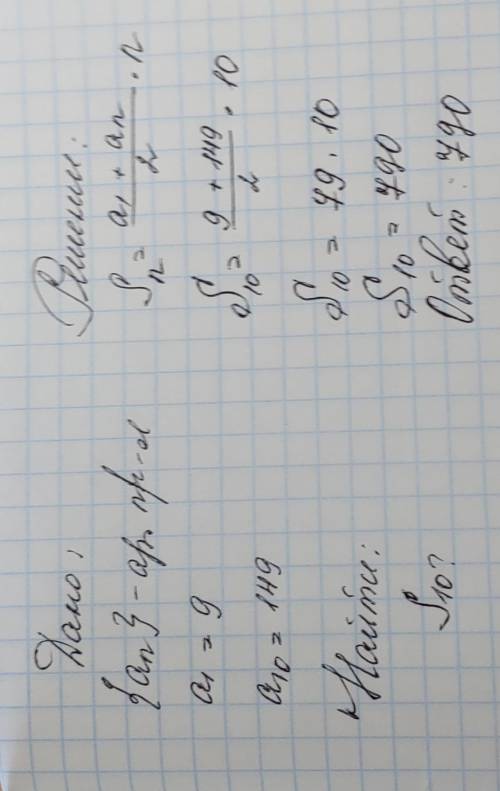 Дано:
{an} - ар. пр-я
a₁ = 9
a₁₀ = 149
Найти:
S₁₀?
Решение:
Sₙ = (a₁ + aₙ)/2 · n
S₁₀ = (9 + 149)/2 · 10
S₁₀ = 79 · 10
S₁₀ = 790
Ответ: 790